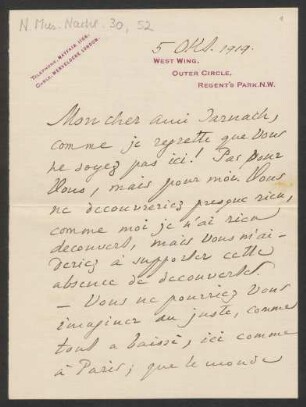 N. Mus. Nachl. 30, 52
5 Oct. 1919.
WEST WING,
OUTER CIRCLE,
REGENT'S PARK. N.W.
TELEPHONE, MAYFAIR
CABLE, LONDON.
Mon cher ami Jarnach,
comme je regrette que Vous
ne soyez pas ici! Pas pour
Vous, mais pour moi. Vous
ne decouvreriez presque rien,
comme moi je n'ai rien
decouvert, mais Vous m'ai-
deriez à supporter cette
absence de decouvertes.
— Vous ne pourriez Vous
imaginer au juste, comme
tout a baissé, ici comme
à Paris; que le monde